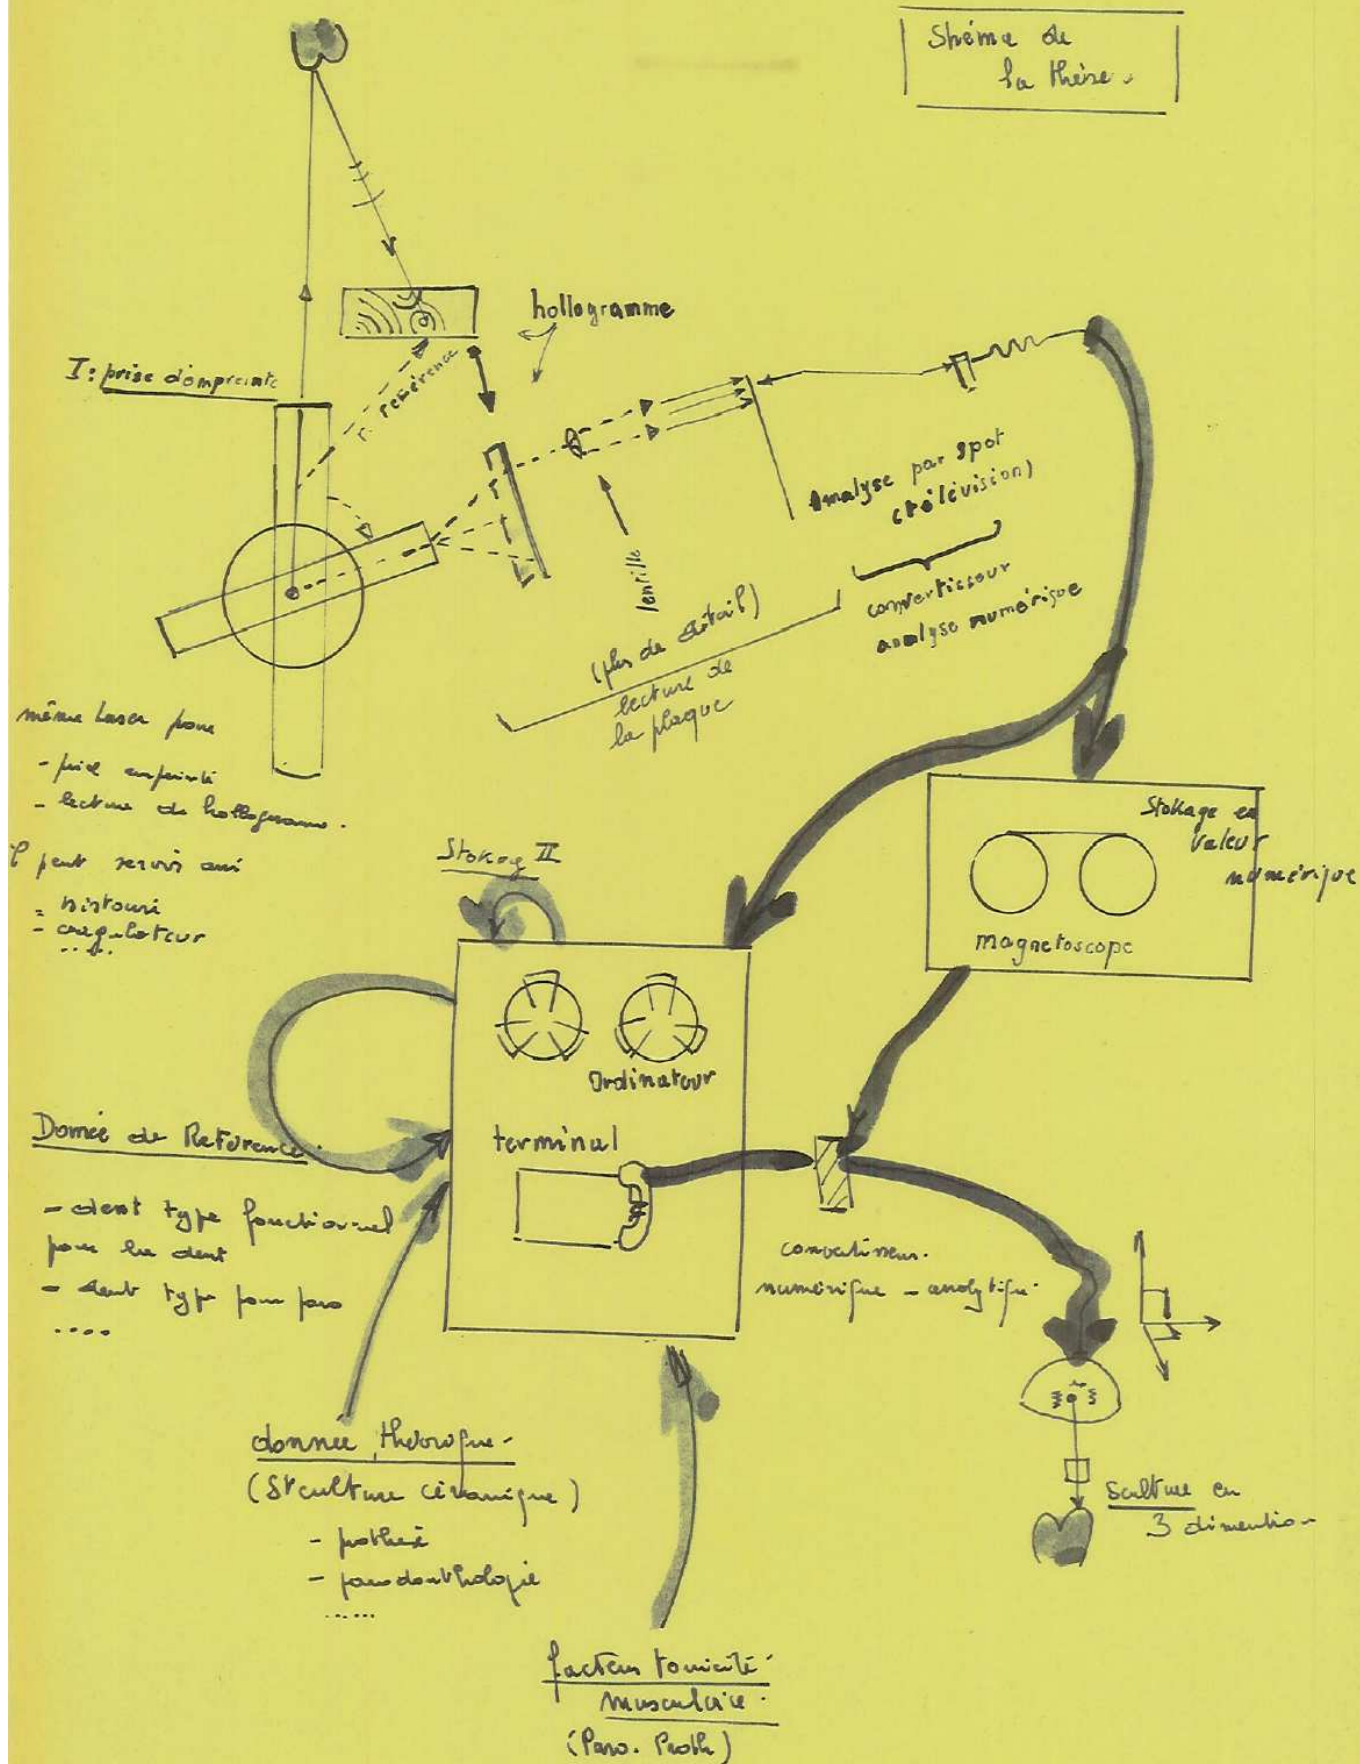 Shéma de
la thèse.
hollogramme
I: prise d'empreinte
r. reférence
Analyse par spot
(télévision)
convertisseur
analyse numérique
lentille
(plus de détail)
lecture de
la plaque
même laser pour
- prise empreinte
- lecture de hollogramme.
il peut servir aussi
= bistouri
- coagulateur
.....
Stokage en
Valeur
numérique
magnetoscope
Stokage II
Ordinateur
terminal
Donnée de Reference.
- dent type fonctionnel
pour la dent
- dent type pour paro
....
convertisseur.
numérique - analytique
donnée théorique -
(Sculture céramique)
- prothèse
- parodonthologie
......
Sculture en
3 dimention
facteur tonicité
musculaire.
(Paro. Proth)